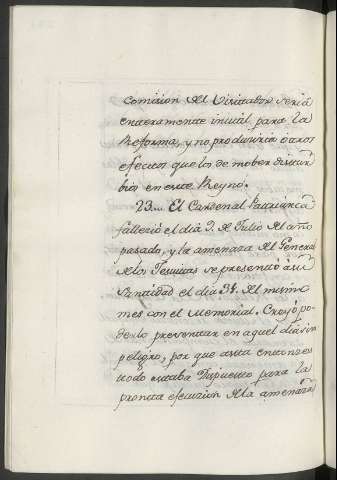 Comision del Visitador seria
enteramente inutil para la
Reforma, y no produciria otros
efectos que los de mober distur
bios en este Reyno.
23... El Cardenal Patriarca
fallecio el dia 9. de Julio del año
pasado, y la amenaza del General
de los Jesuitas se presentó à su
Santidad el dia 31. del mismo
mes con el Memorial. Creyó po-
derlo presentar en aquel dia sin
peligro, por que asta entonzes
todo estaba dispuesto para la
pronta execuzion de la amenaza